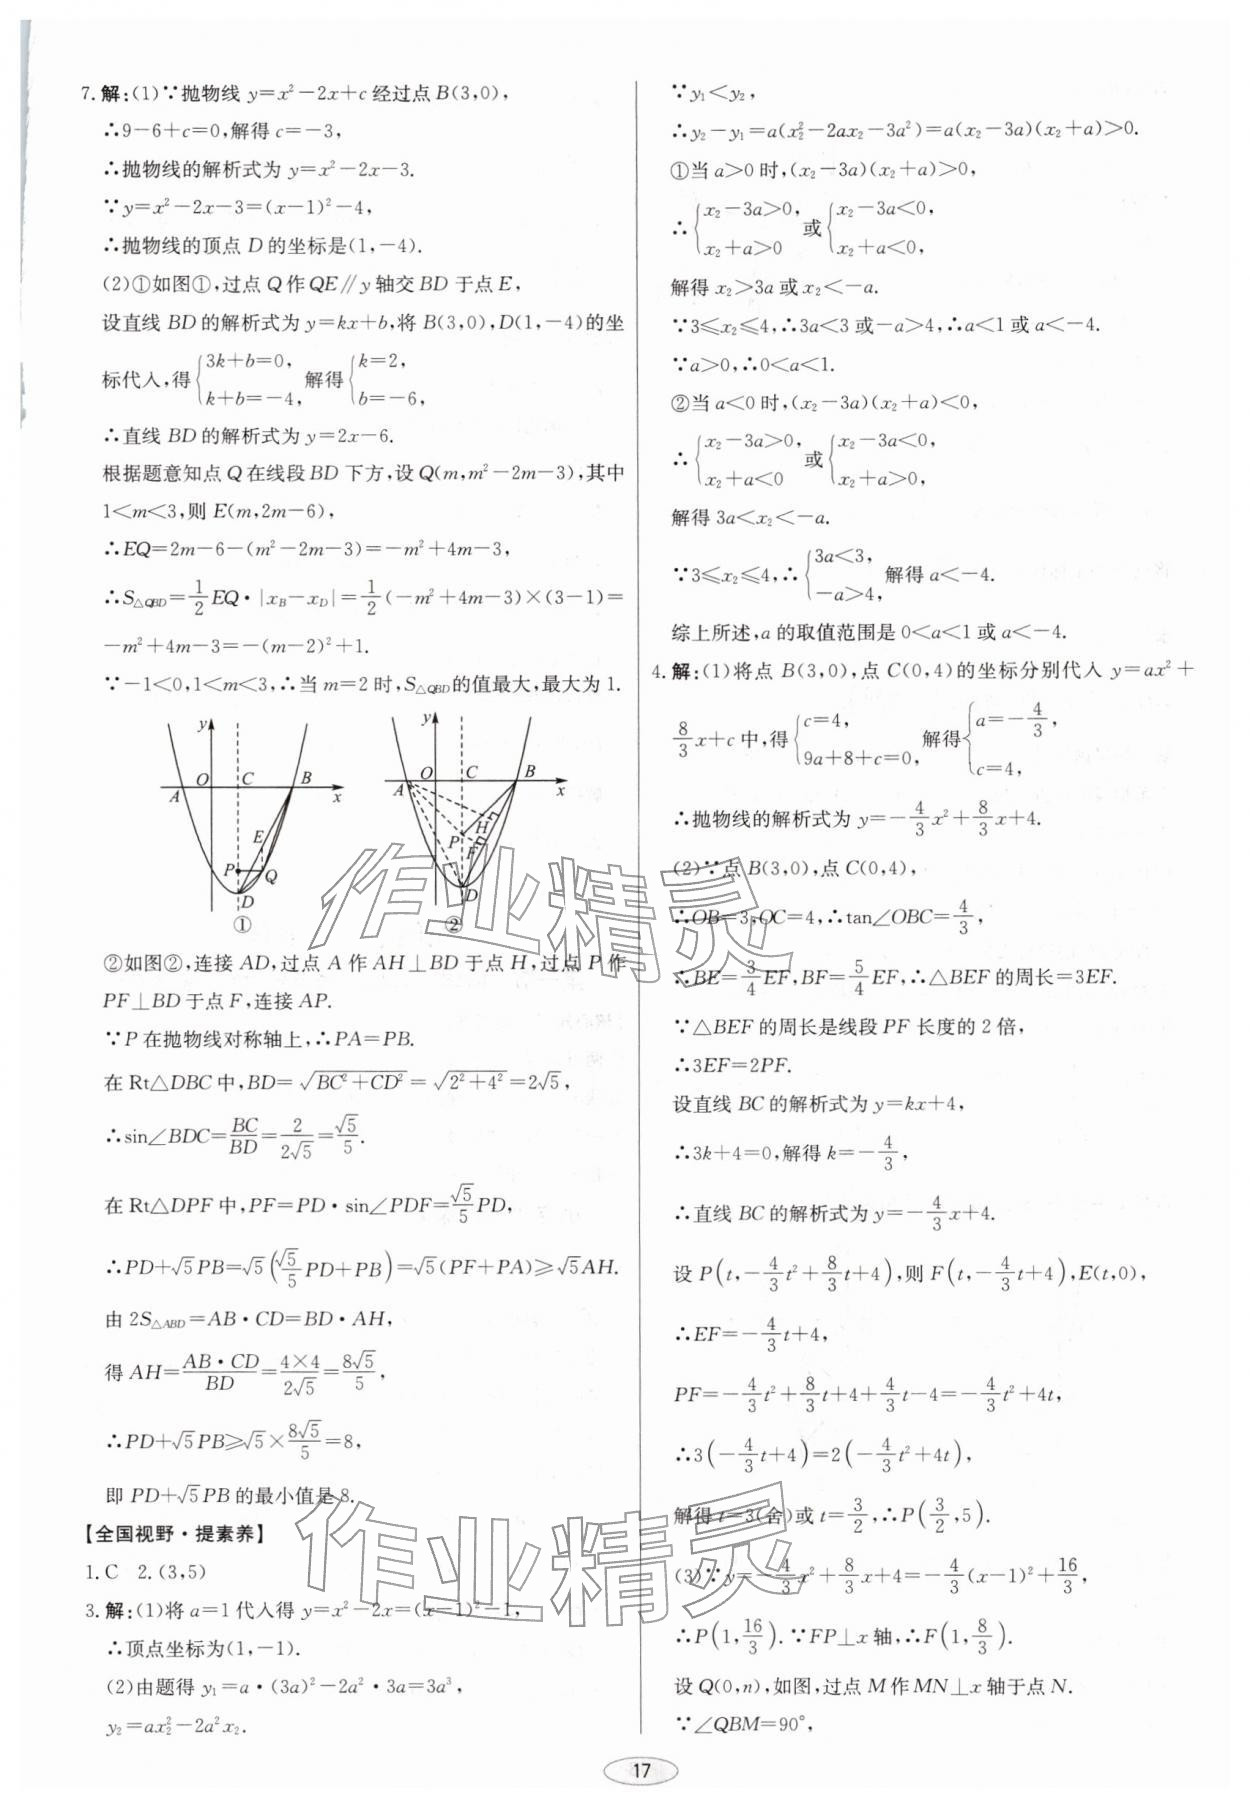 7.解:(1)∵抛物线 y=x²-2x+c 经过点 B(3,0),
∴9-6+c=0,解得 c=-3,
∴抛物线的解析式为 y=x²-2x-3.
∵y=x²-2x-3=(x-1)²-4,
∴抛物线的顶点 D 的坐标是(1,-4).
(2)①如图①,过点 Q 作 QE∥y 轴交 BD 于点 E,
设直线 BD 的解析式为 y=kx+b,将 B(3,0),D(1,-4)的坐
标代入,得{3k+b=0, k+b=-4, 解得{k=2, b=-6,
∴直线 BD 的解析式为 y=2x-6.
根据题意知点 Q 在线段 BD 下方,设 Q(m,m²-2m-3),其中
1<m<3,则 E(m,2m-6),
∴EQ=2m-6-(m²-2m-3)=-m²+4m-3,
∴S△QBD=1/2 EQ·|x_B-x_D|=1/2(-m²+4m-3)×(3-1)=
-m²+4m-3=-(m-2)²+1.
∵-1<0,1<m<3,∴当 m=2 时,S△QBD的值最大,最大为 1.
y O C B A x E P Q D ①
y O C B A x H P F D ②
②如图②,连接 AD,过点 A 作 AH⊥BD 于点 H,过点 P 作
PF⊥BD 于点 F,连接 AP.
∵P 在抛物线对称轴上,∴PA=PB.
在 Rt△DBC 中,BD=√(BC²+CD²)=√(2²+4²)=2√5,
∴sin∠BDC=BC/BD=2/(2√5)=√5/5.
在 Rt△DPF 中,PF=PD·sin∠PDF=√5/5 PD,
∴PD+√5PB=√5(√5/5 PD+PB)=√5(PF+PA)≥√5AH.
由 2S△ABD=AB·CD=BD·AH,
得 AH=AB·CD/BD=4×4/(2√5)=8√5/5,
∴PD+√5PB≥√5×8√5/5=8,
即 PD+√5PB 的最小值是 8.
【全国视野·提素养】
1.C 2.(3,5)
3.解:(1)将 a=1 代入得 y=x²-2x=(x-1)²-1,
∴顶点坐标为(1,-1).
(2)由题得 y₁=a·(3a)²-2a²·3a=3a³,
y₂=ax₂²-2a²x₂.
∵y₁<y₂,
∴y₂-y₁=a(x₂²-2ax₂-3a²)=a(x₂-3a)(x₂+a)>0.
①当 a>0 时,(x₂-3a)(x₂+a)>0,
∴{x₂-3a>0, x₂+a>0 或{x₂-3a<0, x₂+a<0,
解得 x₂>3a 或 x₂<-a.
∵3≤x₂≤4,∴3a<3 或-a>4,∴a<1 或 a<-4.
∵a>0,∴0<a<1.
②当 a<0 时,(x₂-3a)(x₂+a)<0,
∴{x₂-3a>0, x₂+a<0 或{x₂-3a<0, x₂+a>0,
解得 3a<x₂<-a.
∵3≤x₂≤4,∴{3a<3, -a>4, 解得 a<-4.
综上所述,a 的取值范围是 0<a<1 或 a<-4.
4.解:(1)将点 B(3,0),点 C(0,4)的坐标分别代入 y=ax²+
8/3 x+c 中,得{c=4, 9a+8+c=0, 解得{a=-4/3, c=4,
∴抛物线的解析式为 y=-4/3 x²+8/3 x+4.
(2)∵点 B(3,0),点 C(0,4),
∴OB=3,OC=4,∴tan∠OBC=4/3,
∴BE=3/4 EF,BF=5/4 EF,∴△BEF 的周长=3EF.
∵△BEF 的周长是线段 PF 长度的 2 倍,
∴3EF=2PF.
设直线 BC 的解析式为 y=kx+4,
∴3k+4=0,解得 k=-4/3,
∴直线 BC 的解析式为 y=-4/3 x+4.
设 P(t,-4/3 t²+8/3 t+4),则 F(t,-4/3 t+4),E(t,0),
∴EF=-4/3 t+4,
PF=-4/3 t²+8/3 t+4+4/3 t-4=-4/3 t²+4t,
∴3(-4/3 t+4)=2(-4/3 t²+4t),
解得 t=3(舍)或 t=3/2,∴P(3/2,5).
(3)∵y=-4/3 x²+8/3 x+4=-4/3(x-1)²+16/3,
∴P(1,16/3).∵FP⊥x 轴,∴F(1,8/3).
设 Q(0,n),如图,过点 M 作 MN⊥x 轴于点 N.
∵∠QBM=90°,
17
作业精灵
作业精灵